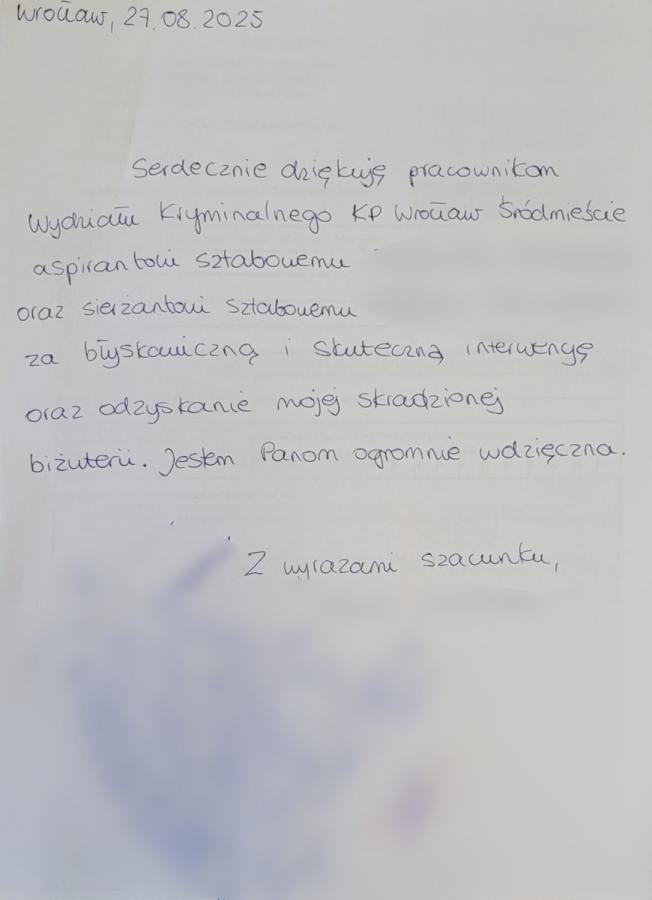 Wrocław, 27.08.2025
Serdecznie dziękuję pracownikom
Wydziału Kryminalnego KP Wrocław Śródmieście
aspirantowi sztabowemu
oraz sierżantowi sztabowemu
za błyskawiczną i skuteczną interwencję
oraz odzyskanie mojej skradzionej
biżuterii. Jestem Panom ogromnie wdzięczna.
Z wyrazami szacunku,